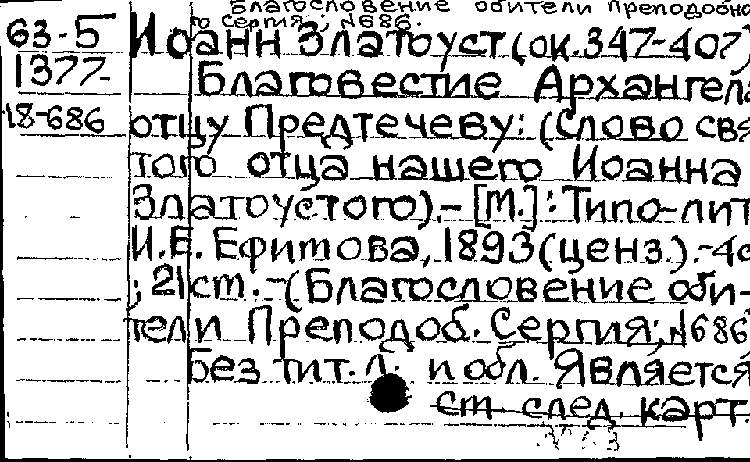 Благословение обители преподобно
го Сергия; №686.
63-5 Иоанн Златоуст (ок.347-407)
1377- Благовестие Архангела
18-686 отцу Предтечеву: (Слово свя
того отца нашего Иоанна
Златоустого).- [М.]: Типо-лит
И.Е. Ефимова, 1893 (ценз.).-4с
; 21 см.-(Благословение оби-
тели Преподоб. Сергия; №686
Без тит. л. и обл. Является
см. след. карт.